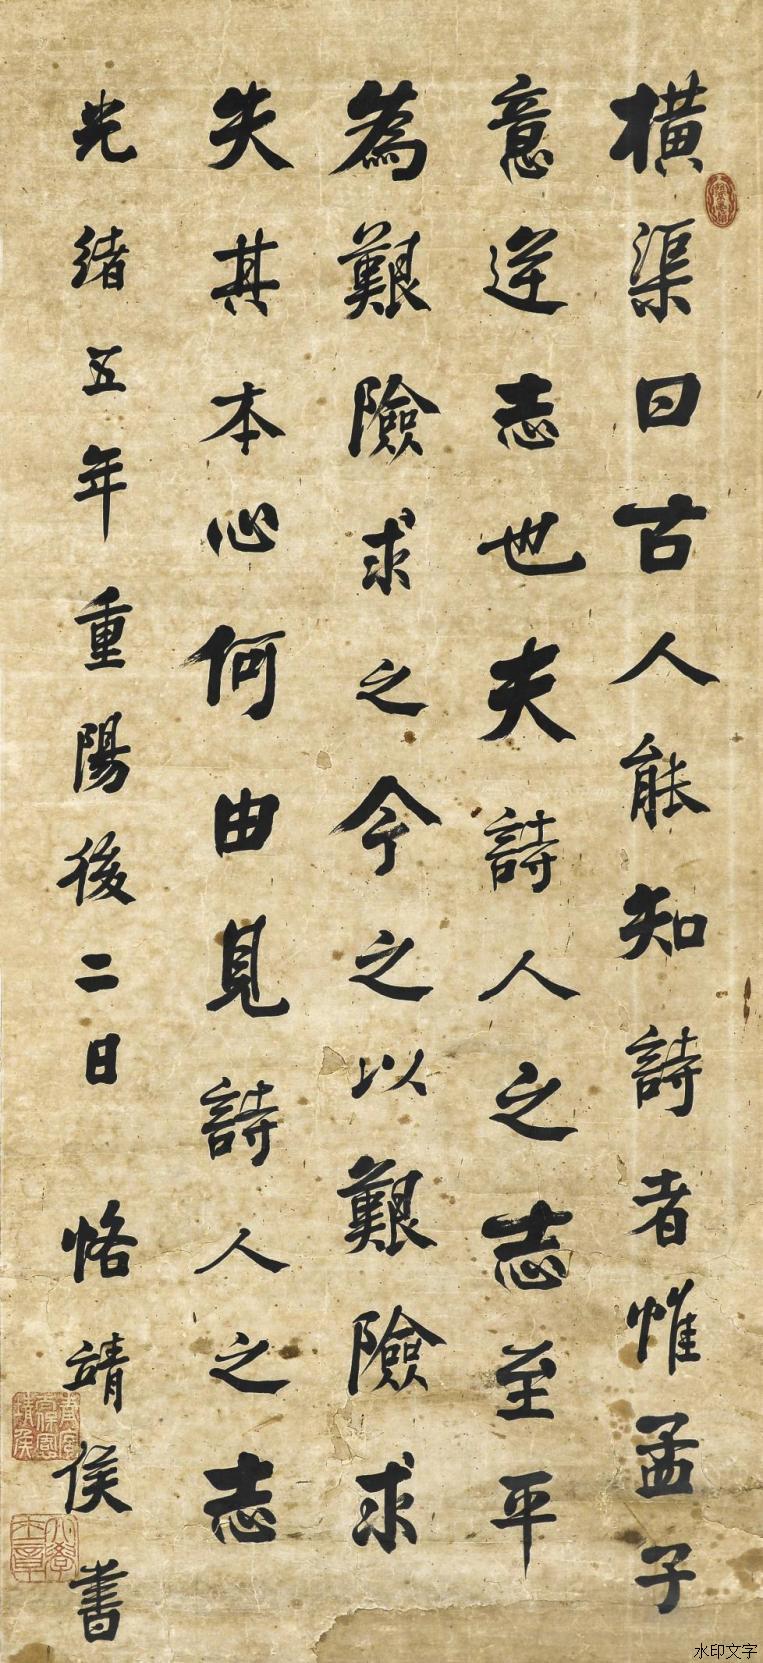 橫渠曰古人能知詩者惟孟子
意逆志也夫詩人之志至平
為艱險求之今之以艱險求
失其本心何由見詩人之志
光緒五年重陽後二日 恪靖侯書
水印文字